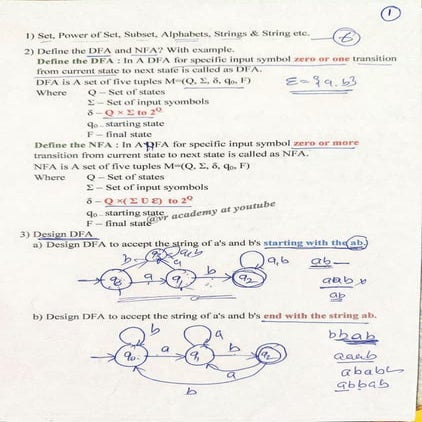 1
1) Set, Power of Set, Subset, Alphabets, Strings & String etc.
2) Define the DFA and NFA? With example.
Define the DFA : In A DFA for specific input symbol zero or one transition
from current state to next state is called as DFA.
DFA is A set of five tuples M=(Q, Σ, δ, q₀, F)
Σ = {a, b}
Where Q – Set of states
Σ – Set of input syombols
δ – Q × Σ to 2^Q
q₀ – starting state
F – final state
Define the NFA : In A NFA for specific input symbol zero or more
transition from current state to next state is called as NFA.
NFA is A set of five tuples M=(Q, Σ, δ, q₀, F)
Where Q – Set of states
Σ – Set of input syombols
δ – Q×( Σ U Ɛ) to 2^Q
q₀ – starting state
F – final state
@vr academy at youtube
3) Design DFA
a) Design DFA to accept the string of a's and b's starting with the ab.
q₀ a q₁ b q₂ a,b
b q₃ a,b
a
ab
aab x
ab
b) Design DFA to accept the string of a's and b's end with the string ab.
b a
q₀ a q₁ b q₂
a
b
bbab
aaab
abab
abbab